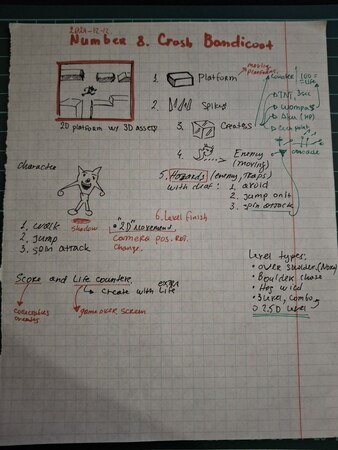 2024-12-12
Number 8. Crash Bandicoot
1. Platform
2. Spikes
3. Creates
4. Enemy
(moving)
5. Hazards (enemy, traps)
with deaf!
1. avoid
2. jump on it
3. spin attack
moving
platforms
counter
100 =
= life
TNT 3sec
Wompa's
Aku (HP)
Checkpoint
2D platform w/ 3D assets
character
shadow
1. walk
2. jump
3. spin attack
6. Level finish
• "2D" movement
camera pos. rot.
change.
Score and Life counters
extra
create with life
game over screen
Level types.
• over shoulder
• Boulder chase
• Hog wild
• 3 level, combo
• 2.5D level